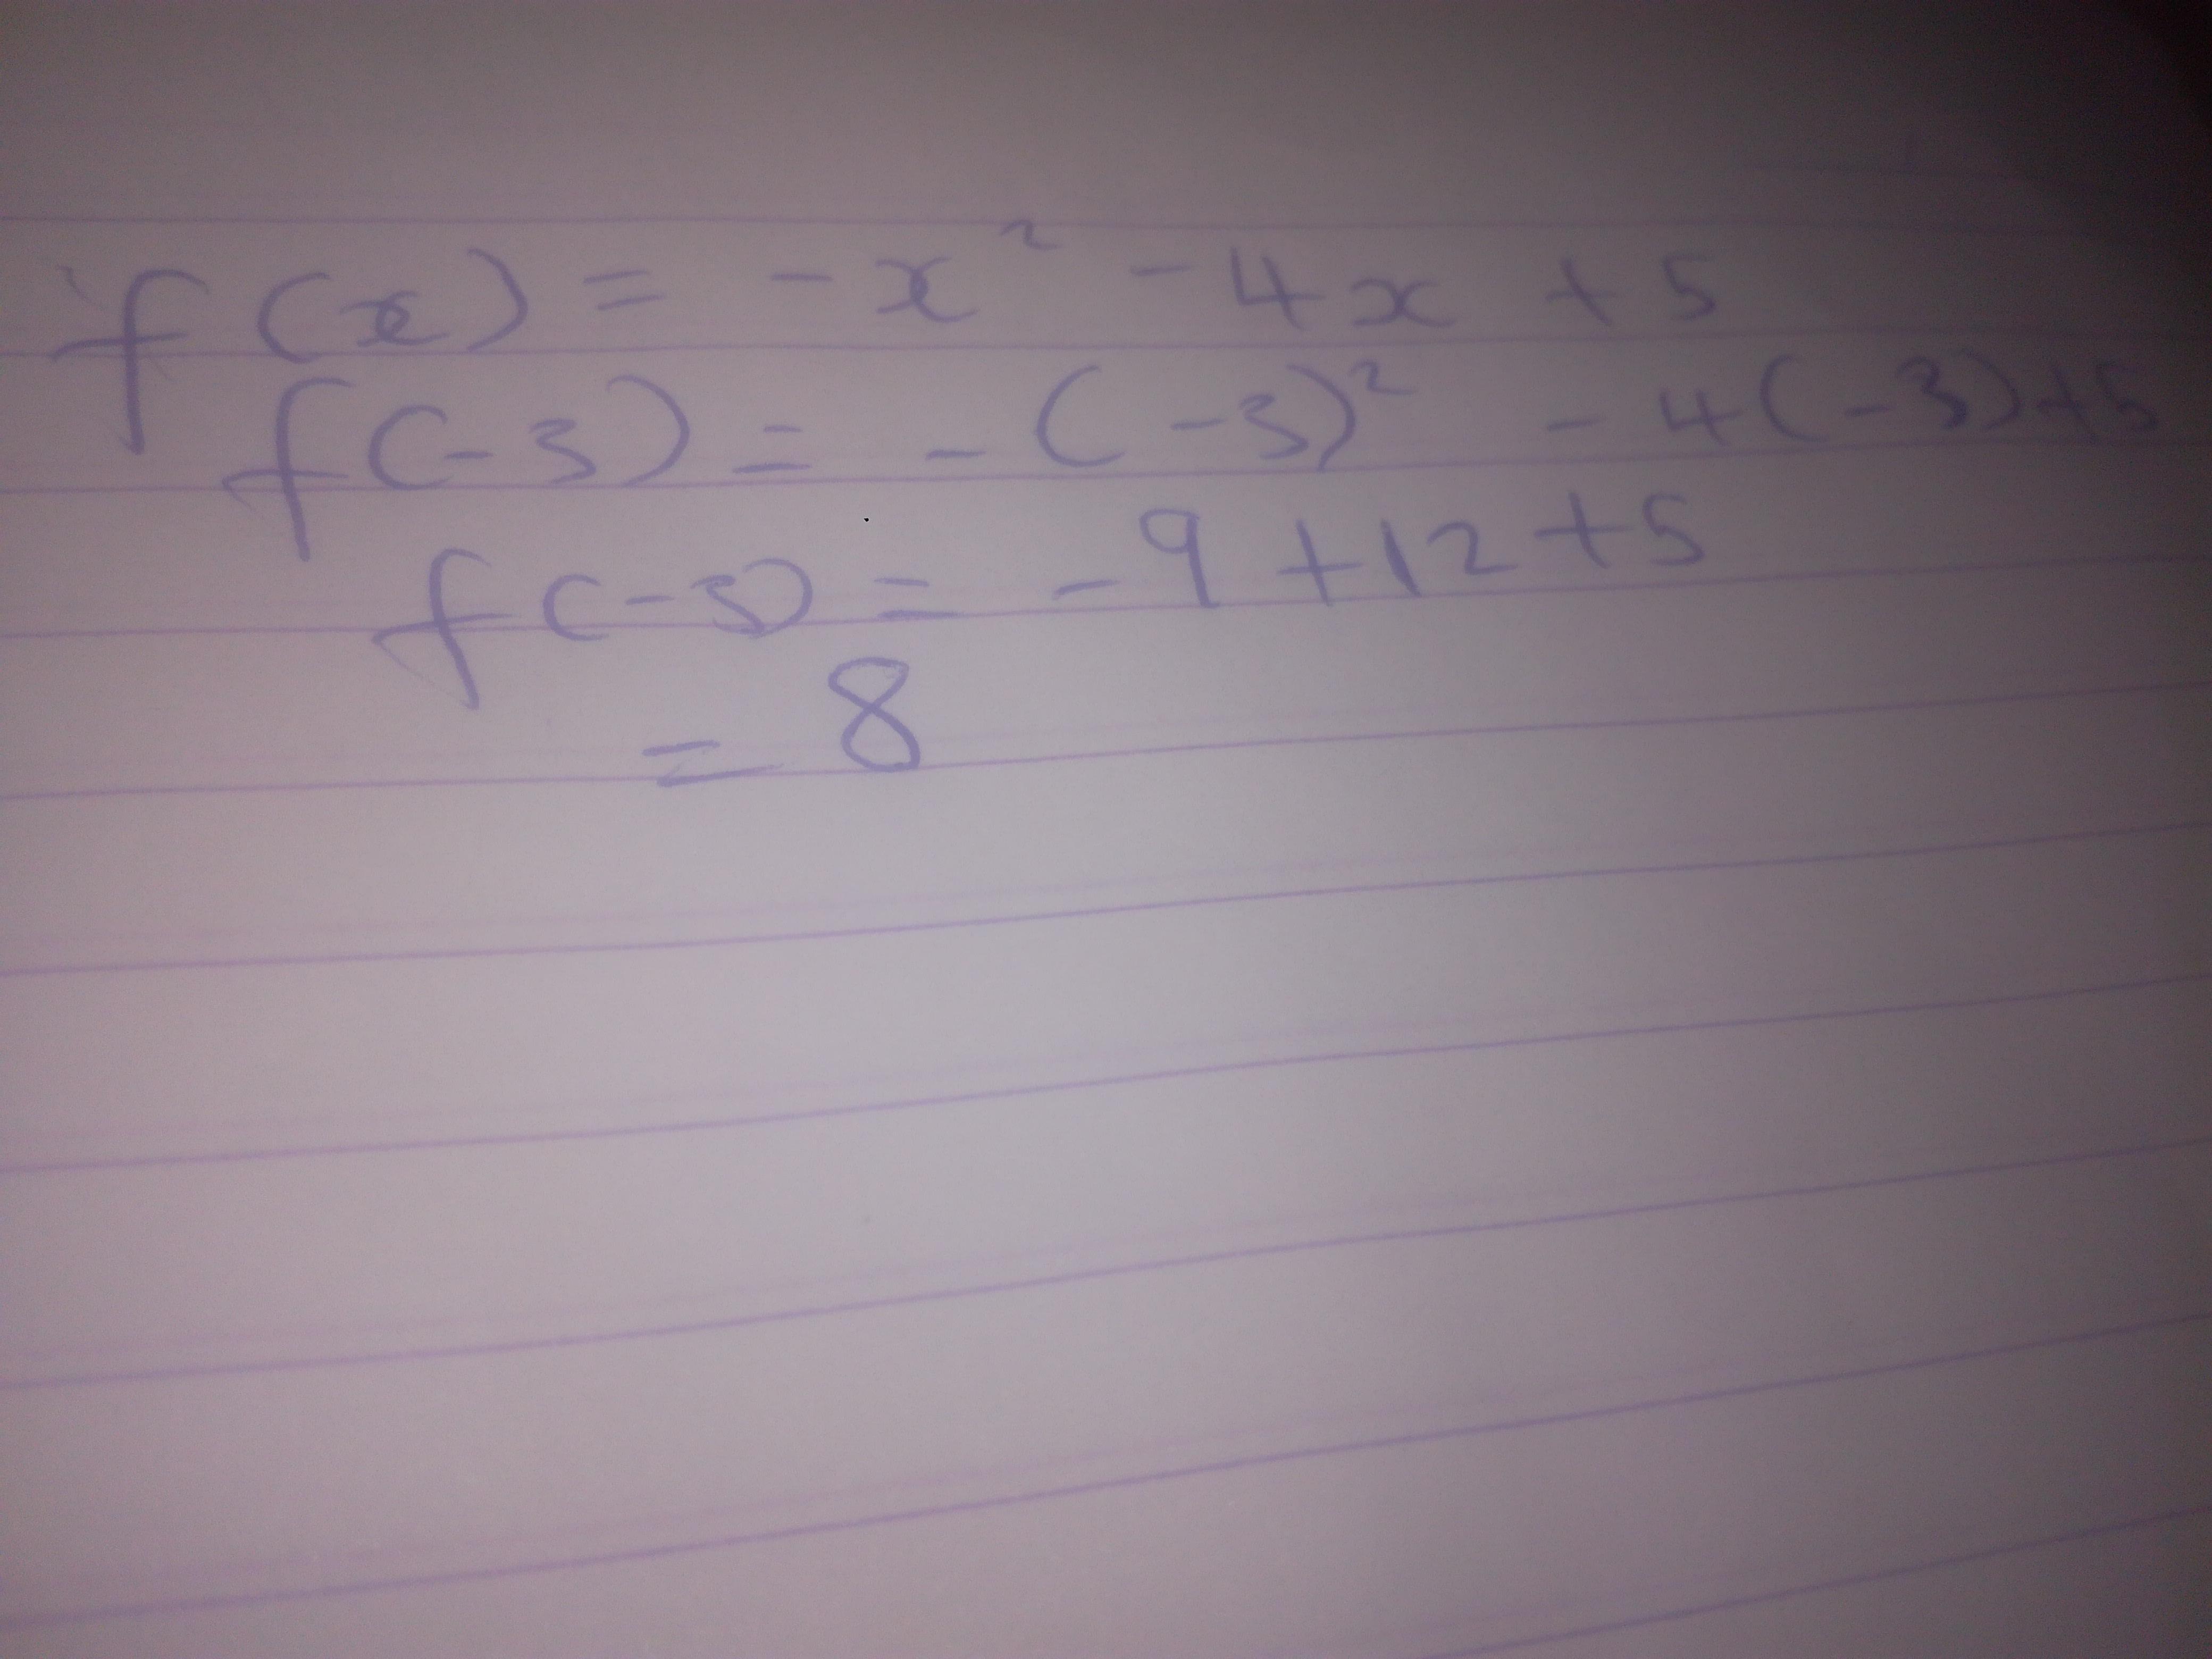 f(x) = -x² - 4x + 5
f(-3) = -(-3)² - 4(-3)+5
f(-3) = -9 +12 +5
= 8